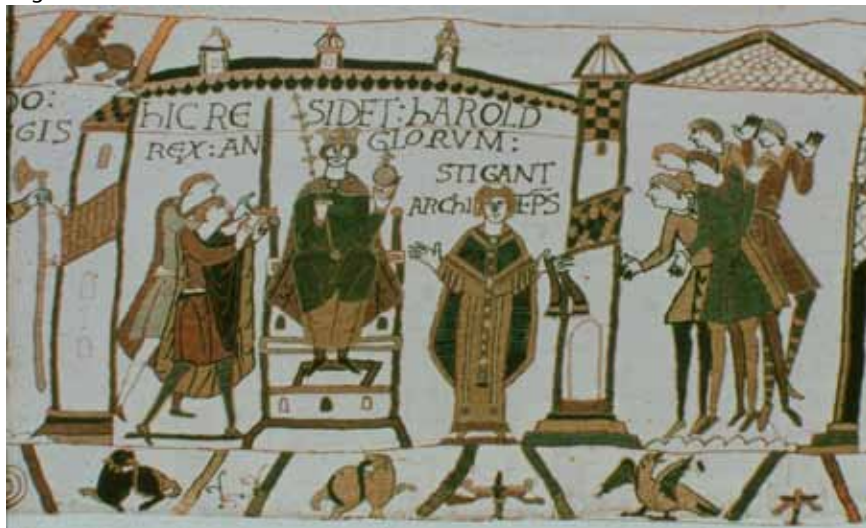 DO: hIC RE SIDET: hAROLD
GIS REX: AN GLORVM:
STIGANT
ARChI EPS